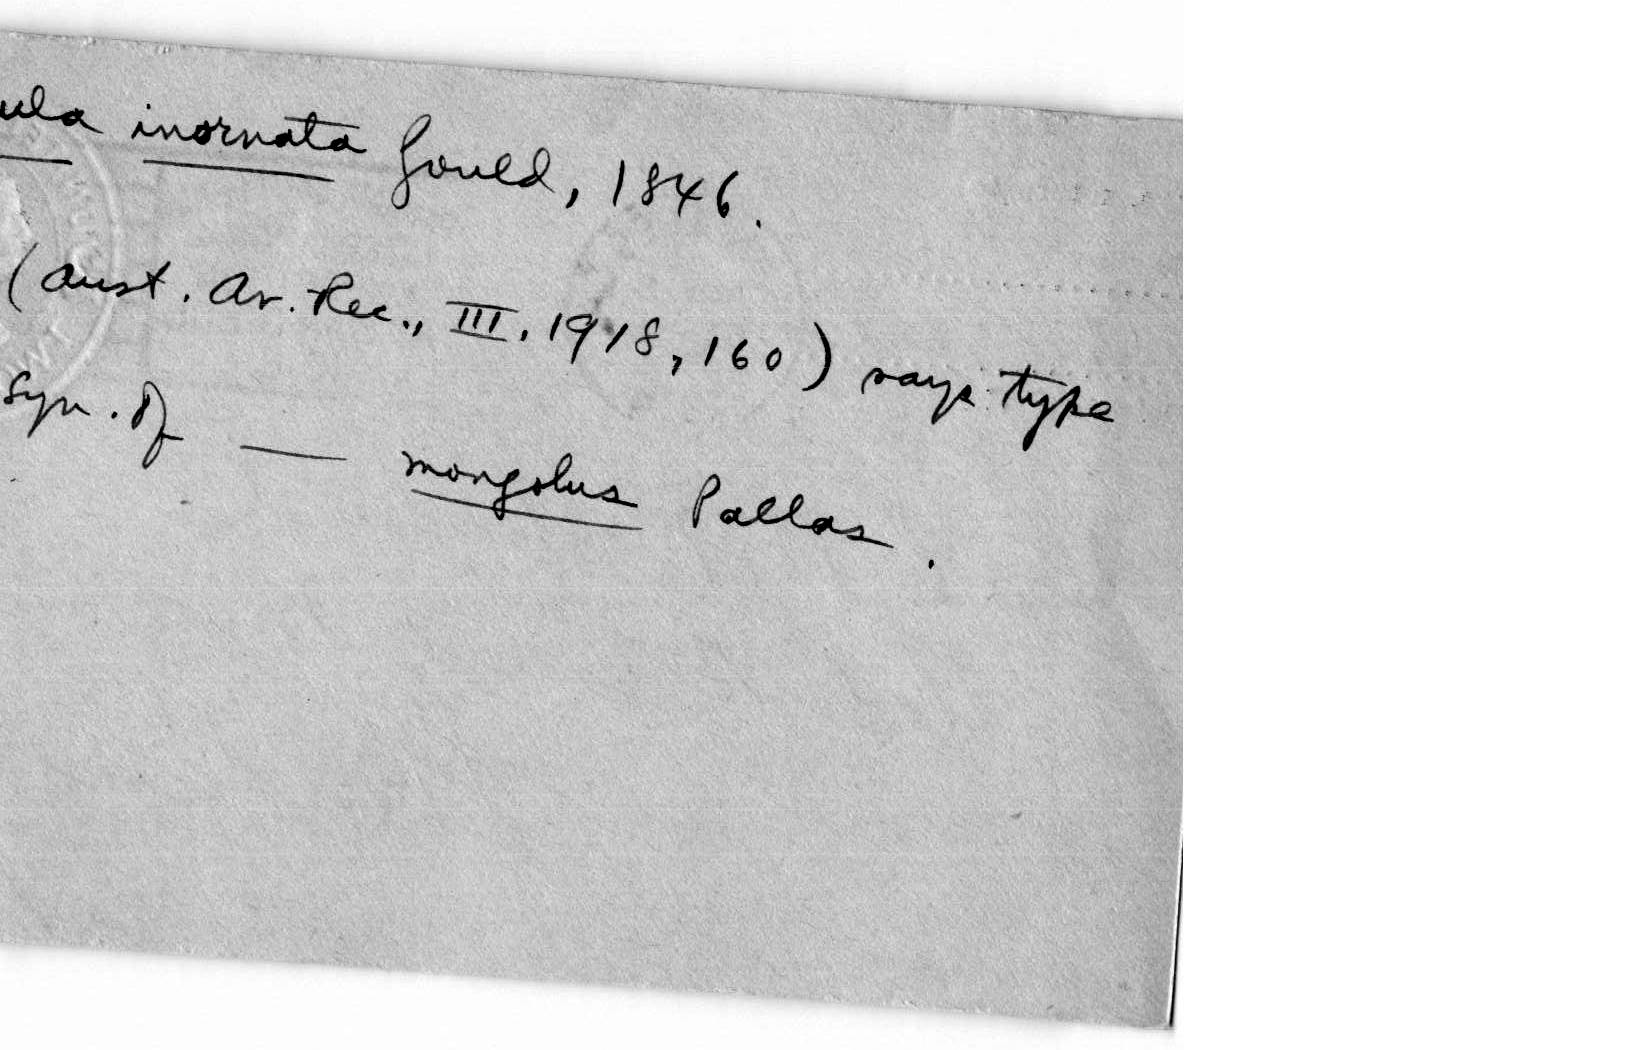 ula inornata Gould, 1846.
(Aust. Av. Rec., III, 1918, 160) says type
Syn. of — mongolus Pallas.